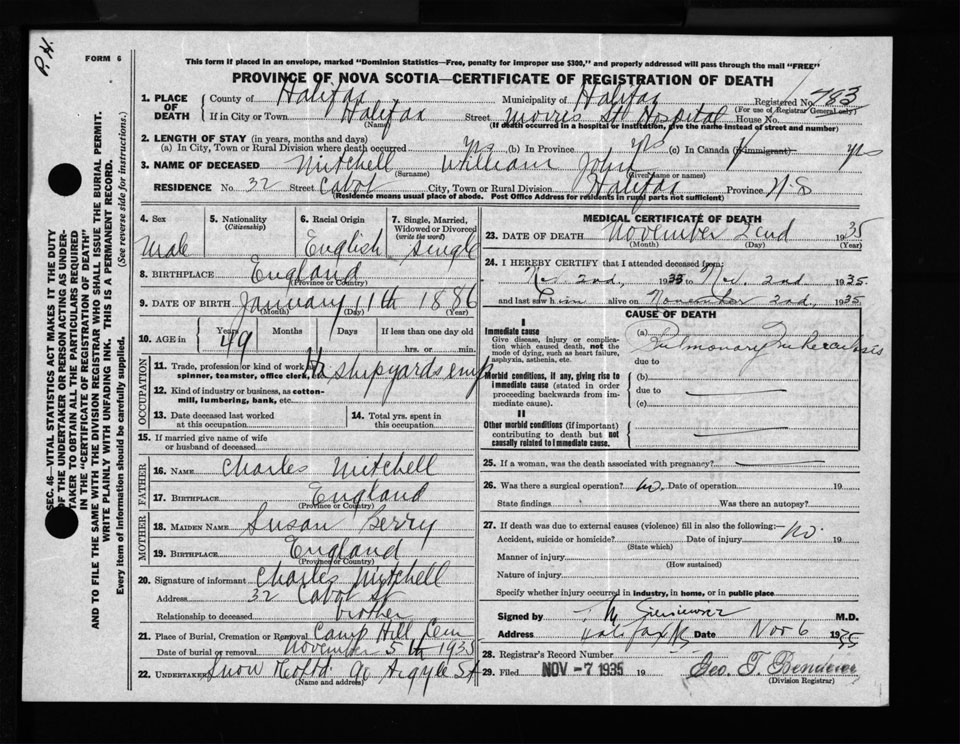 P.H.
FORM 6
This form if placed in an envelope, marked "Dominion Statistics—Free, penalty for improper use $300," and properly addressed will pass through the mail "FREE"
PROVINCE OF NOVA SCOTIA—CERTIFICATE OF REGISTRATION OF DEATH
1. PLACE OF DEATH County of Halifax Municipality of Halifax Registered No. 783
(For use of Registrar General only)
If in City or Town Halifax Street Morris St Hospital House No.
(Name) (If death occurred in a hospital or institution, give the name instead of street and number)
2. LENGTH OF STAY (in years, months and days)
(a) In City, Town or Rural Division where death occurred yrs (b) In Province yrs (c) In Canada (if immigrant) yrs
3. NAME OF DECEASED Mitchell William John
(Surname) (Given name or names)
RESIDENCE No. 32 Street Cabot City, Town or Rural Division Halifax Province N.S
(Residence means usual place of abode. Post Office Address for residents in rural parts not sufficient)
4. Sex 5. Nationality (Citizenship) 6. Racial Origin 7. Single, Married, Widowed or Divorced (write the word)
Male English Single
8. BIRTHPLACE England
(Province or Country)
9. DATE OF BIRTH January 11th 1886
(Month) (Day) (Year)
10. AGE in Years Months Days If less than one day old
49 hrs. or min.
OCCUPATION
11. Trade, profession or kind of work as spinner, teamster, office clerk, etc. Hx shipyards emp
12. Kind of industry or business, as cotton-mill, lumbering, bank, etc.
13. Date deceased last worked at this occupation 14. Total yrs. spent in this occupation
15. If married give name of wife or husband of deceased
FATHER
16. NAME Charles Mitchell
17. BIRTHPLACE England
(Province or Country)
MOTHER
18. MAIDEN NAME Susan Berry
19. BIRTHPLACE England
(Province or Country)
20. Signature of informant Charles Mitchell
Address 32 Cabot St
Relationship to deceased brother
21. Place of Burial, Cremation or Removal Camp Hill Cem
Date of burial or removal November 5th 1935
22. UNDERTAKER Snow Co Ltd 90 Argyle St
(Name and address)
MEDICAL CERTIFICATE OF DEATH
23. DATE OF DEATH November 2nd 1935
(Month) (Day) (Year)
24. I HEREBY CERTIFY that I attended deceased from:
Nov. 2nd, 1935 to Nov. 2nd 1935.
and last saw him alive on November 2nd, 1935.
CAUSE OF DEATH
I
Immediate cause
Give disease, injury or complication which caused death, not the mode of dying, such as heart failure, asphyxia, asthenia, etc.
(a) Pulmonary Tuberculosis
due to
Morbid conditions, if any, giving rise to immediate cause (stated in order proceeding backwards from immediate cause).
(b)
due to
(c)
II
Other morbid conditions (if important) contributing to death but not causally related to immediate cause.
25. If a woman, was the death associated with pregnancy?
26. Was there a surgical operation? No. Date of operation 19
State findings Was there an autopsy?
27. If death was due to external causes (violence) fill in also the following:—
Accident, suicide or homicide? Date of injury No. 19
(State which)
Manner of injury
(How sustained)
Nature of injury
Specify whether injury occurred in industry, in home, or in public place
Signed by M.D.
Address Halifax NS Date Nov 6 1935
28. Registrar's Record Number
29. Filed NOV -7 1935 19 Geo. T.
(Division Registrar)
SEC. 46—VITAL STATISTICS ACT MAKES IT THE DUTY
OF THE UNDERTAKER OR PERSON ACTING AS UNDER-
TAKER TO OBTAIN ALL THE PARTICULARS REQUIRED
IN THE "CERTIFICATE OF REGISTRATION OF DEATH"
AND TO FILE THE SAME WITH THE DIVISION REGISTRAR WHO SHALL ISSUE THE BURIAL PERMIT.
WRITE PLAINLY WITH UNFADING INK. THIS IS A PERMANENT RECORD.
Every item of information should be carefully supplied. (See reverse side for instructions.)